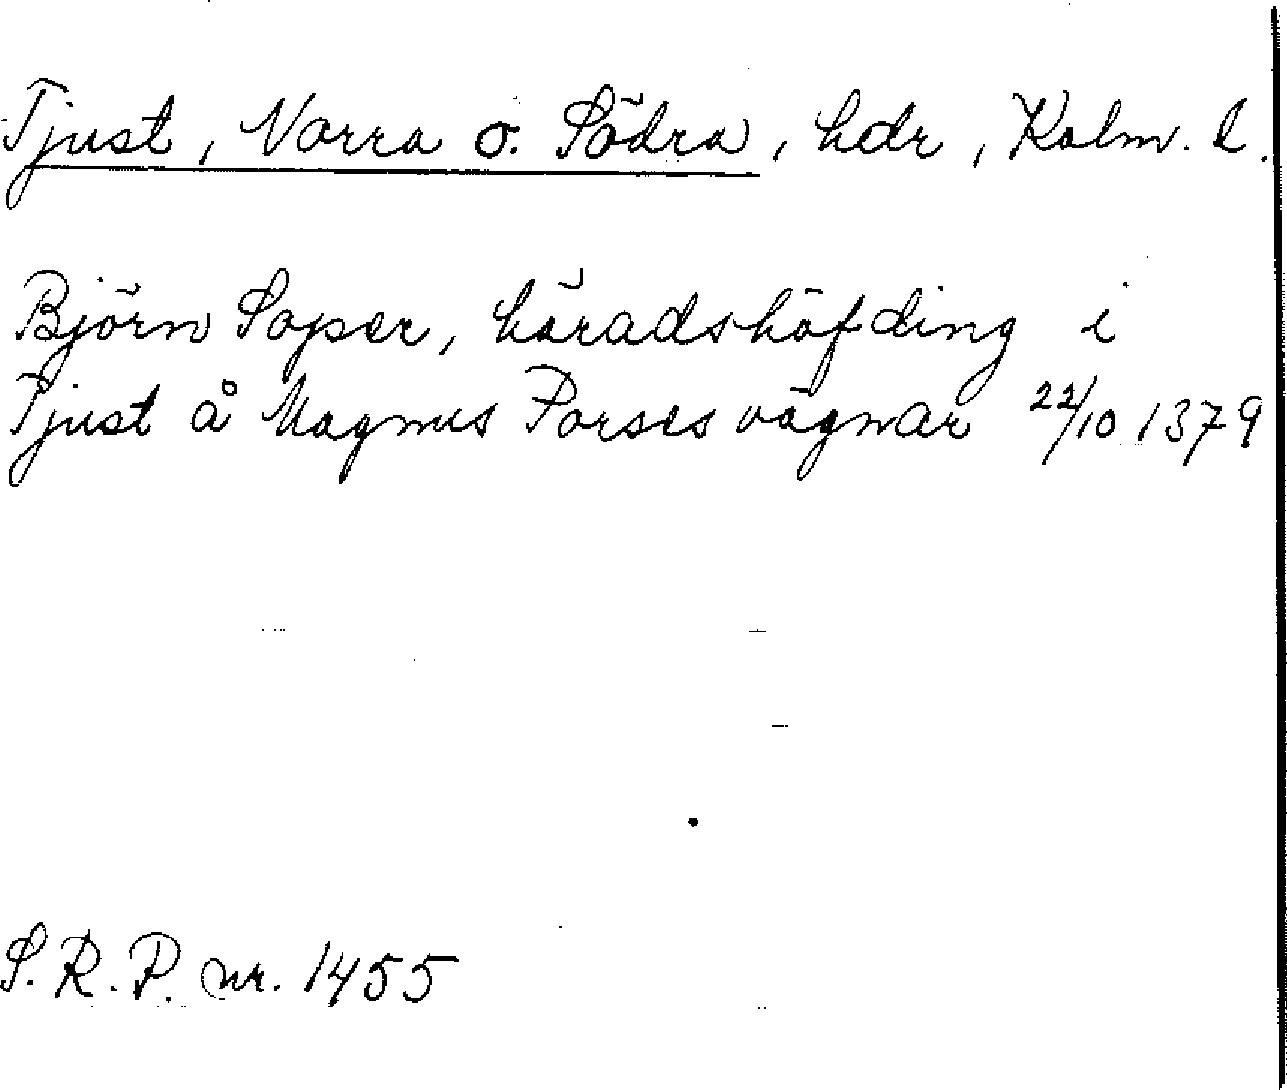 Tjust, Norra o. Södra, hdr, Kalm. l.
Björn Soper, häradshöfding i
Tjust å Magnus Porses vägnar 22/10 1379
S.R.P. nr. 1455